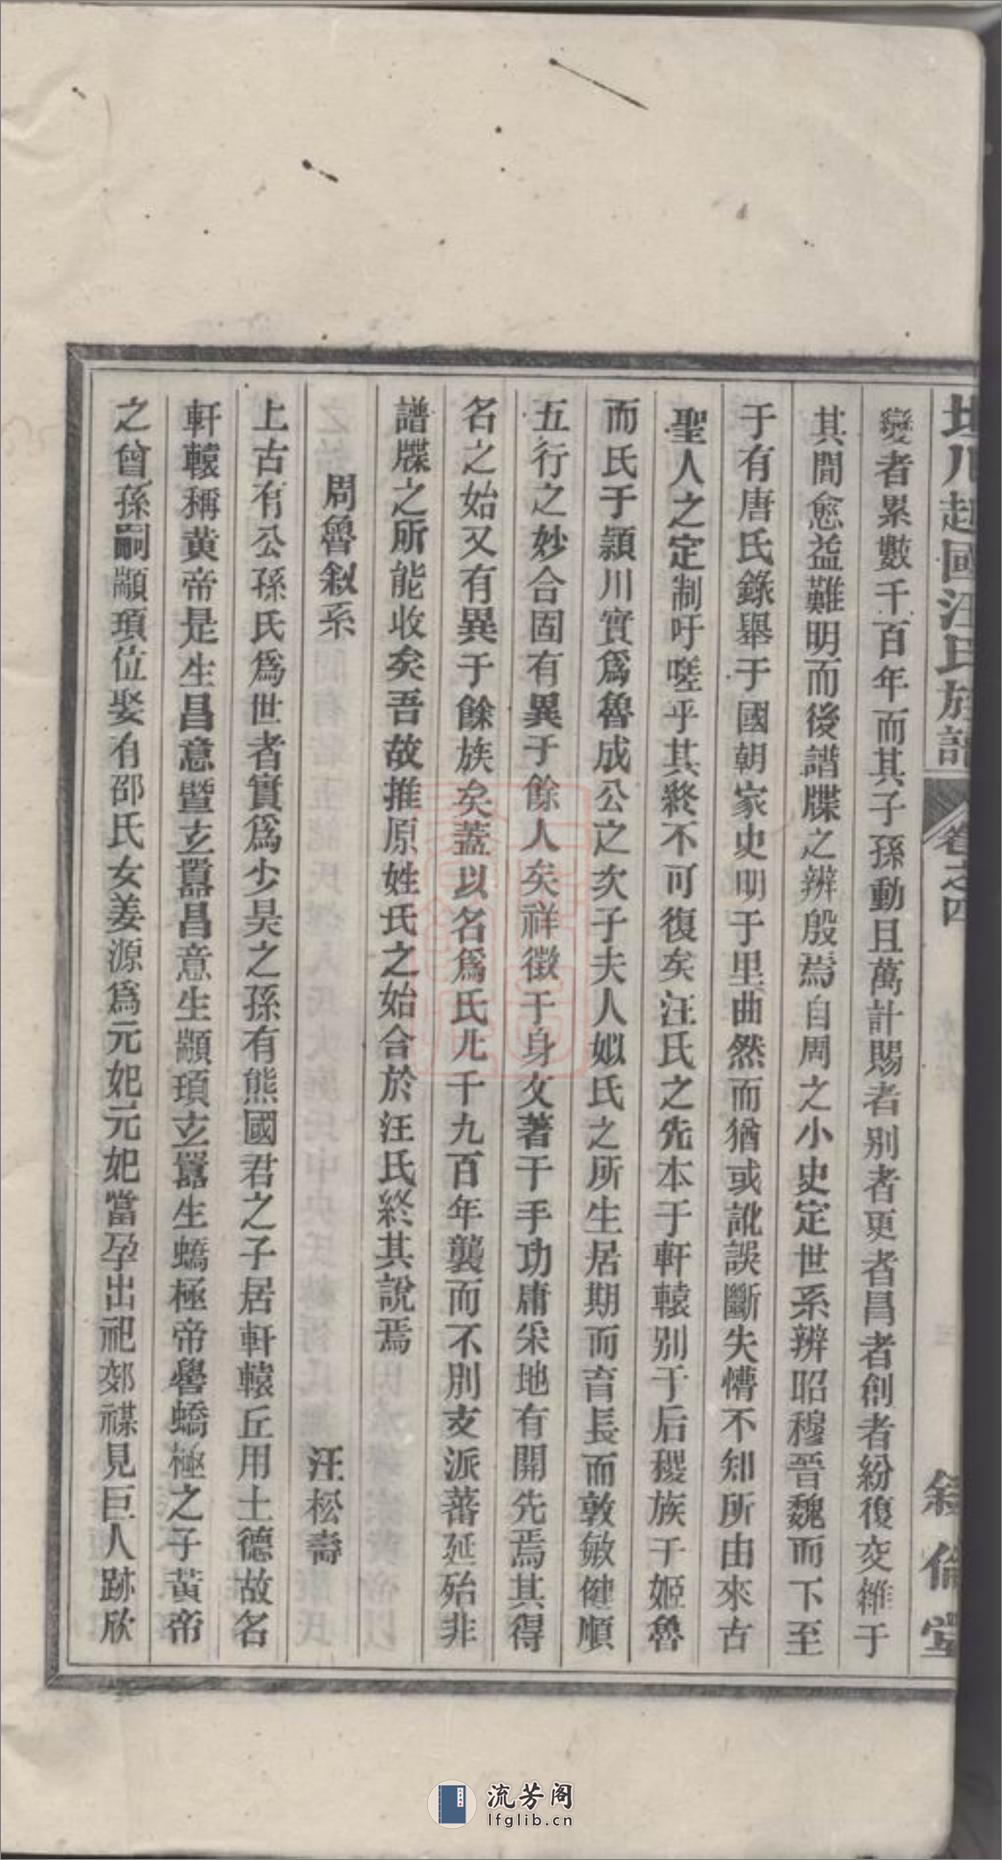 坦川越國汪氏族譜 卷之四 敘倫堂
變者累數千百年而其子孫動且萬計賜者別者更者昌者創者紛復交雜于
其間愈益難明而後譜牒之辨殷焉自周之小史定世系辨昭穆晉魏而下至
于有唐氏錄舉于國朝家史明于里曲然而猶或訛誤斷失懵不知所由來古
聖人之定制吁嗟乎其終不可復矣汪氏之先本于軒轅別于后稷族于姬魯
而氏于潁川實爲魯成公之次子夫人姒氏之所生居期而育長而敦敏健順
五行之妙合固有異于餘人矣祥徵于身文著于手功庸采地有開先焉其得
名之始又有異于餘族矣蓋以名爲氏凡千九百年襲而不別支派蕃延殆非
譜牒之所能收矣吾故推原姓氏之始合於汪氏終其說焉
周魯敘系 汪松壽
上古有公孫氏爲世者實爲少昊之孫有熊國君之子居軒轅丘用土德故名
軒轅稱黃帝是生昌意暨玄囂昌意生顓頊玄囂生蟜極帝嚳蟜極之子黃帝
之曾孫嗣顓頊位娶有邰氏女姜源爲元妃元妃當孕出祀郊禖見巨人跡欣
流芳阁
lfglib.cn